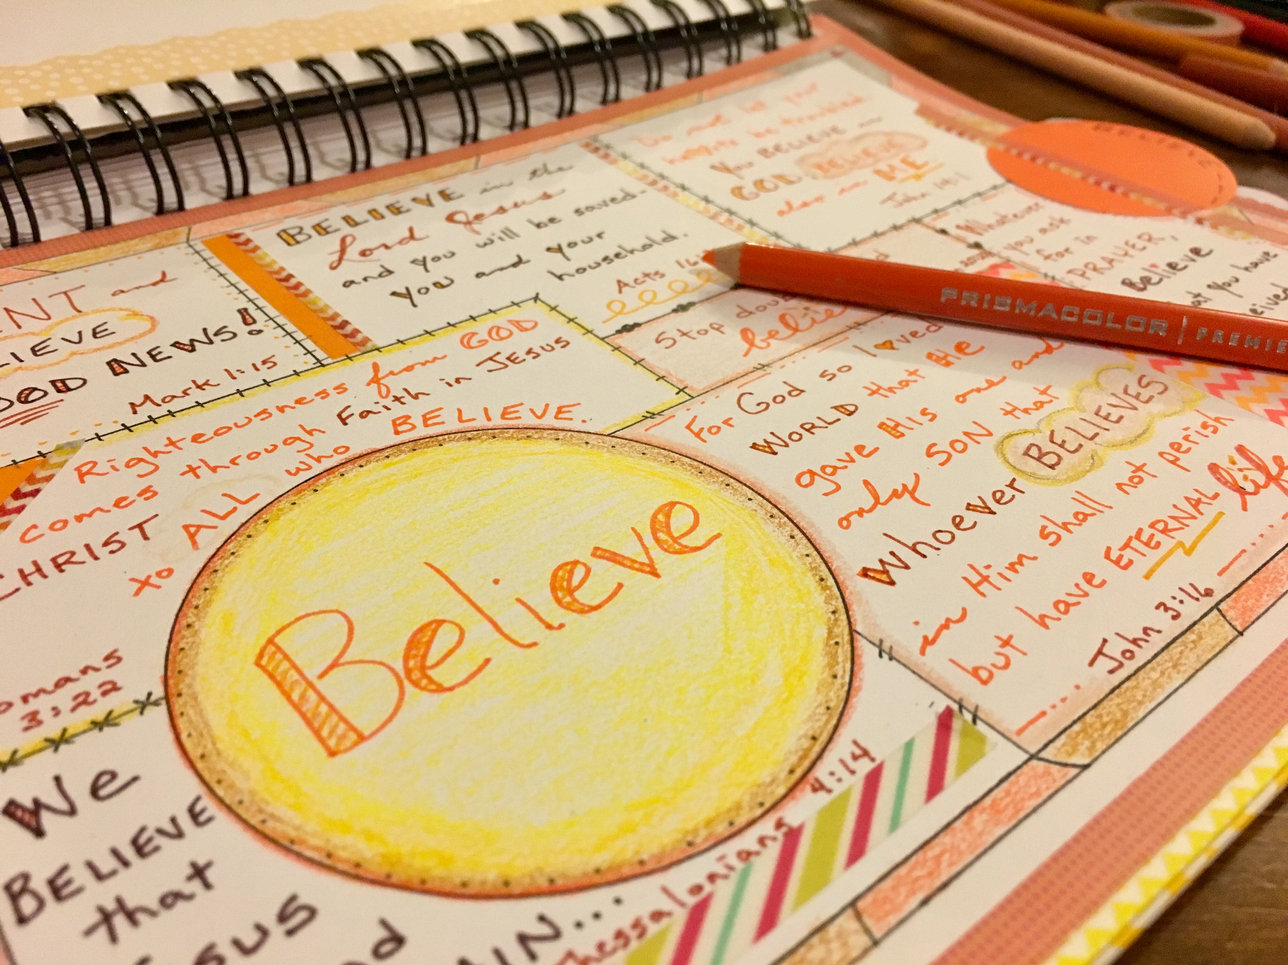 ENT and
LIEVE
OOD NEWS!
Mark 1:15
BELIEVE in the
Lord Jesus
and you will be saved-
you and your
household.
Acts 16
Do not let your
hearts be troubled
You BELIEVE
GOD BELIEVE
also in ME
John 14:1
Whatever
you ask
for in
PRAYER,
Believe
at you have
Stop doub
believ
PRISMACOLOR | PREMIE
Righteousness from GOD
comes through Faith in JESUS
CHRIST ALL who BELIEVE.
xo
omans
3:22
Believe
For God so loved
WORLD that HE
gave His one and
only SON that
whoever BELIEVES
in Him shall not perish
but have ETERNAL life
John 3:16
We
BELIEVE
that
esus
d
AIN...
Thessalonians 4:14